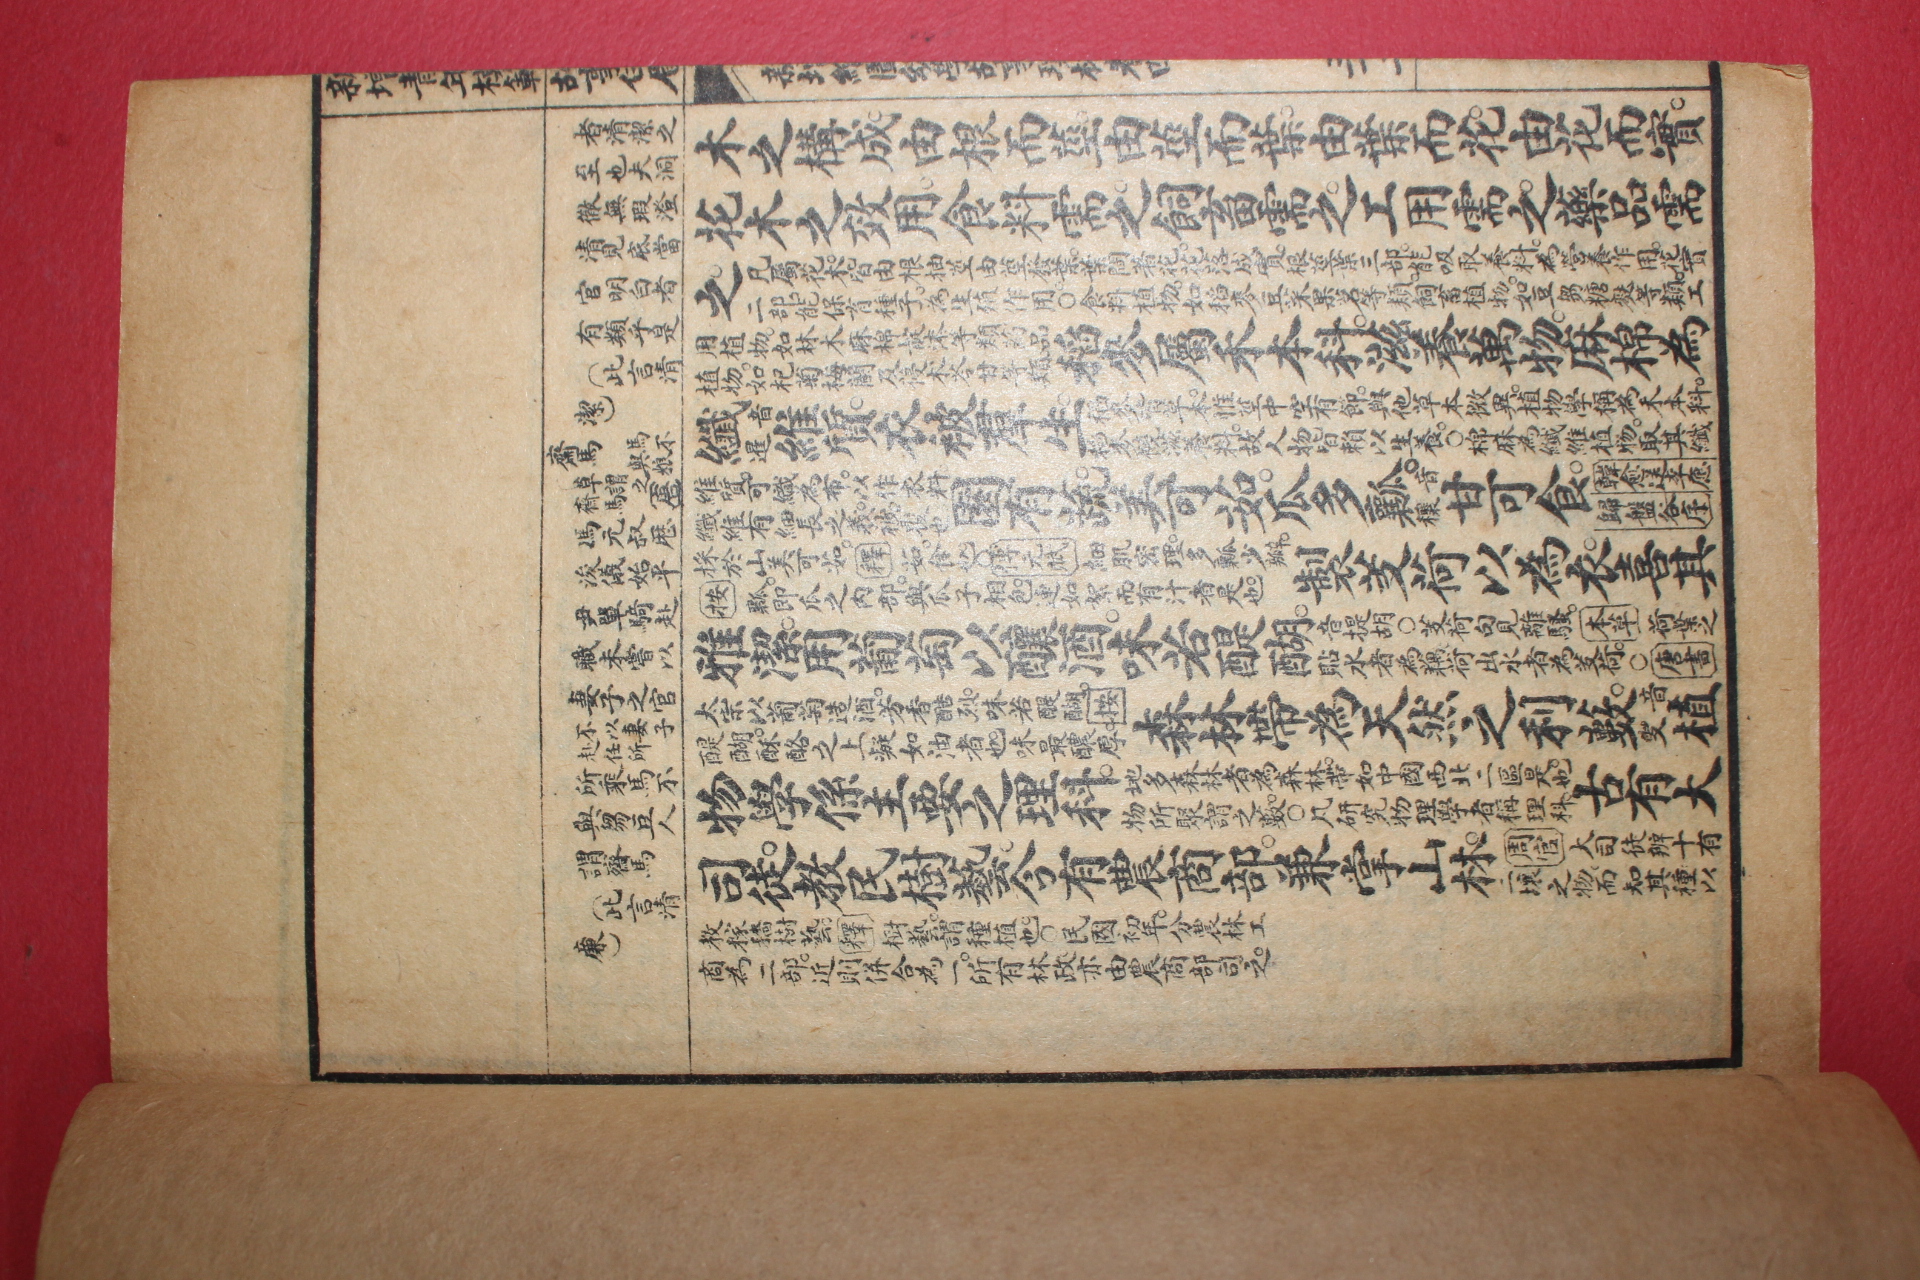 新增青年模範故事
新增繪圖幼學故事瓊林卷四
者清潔之
至也夫洞
徹無瑕澄
清見底當
官明白者
有類乎是
（此言清
潔）
齋馬
馬不
與娘
草謂之
齊馬
馮元叔歷
浚儀始平
尹單騎赴
職未嘗以
妻子之官
不以妻子
赴任所
所乘馬不
與芻豆人
謂齋馬
（此言清
廉）
木之構成。由根而莖。由莖而葉。由葉而花。由花而實。
花木之效用。食料需之。飼畜需之。工用需之。藥品需
之。
凡屬花木。皆由根抽莖。由莖發葉。葉間著花。花落成實。根莖葉三部。能吸取養料。為營養作用。花實
二部。能保育種子。為生殖作用。○食料植物。如稻麥豆菜果茗等類。飼畜植物。如豆芻糖麩等類。工
用植物。如林木麻棉蔬漆等類。藥品
植物。如杞菊梅蘭及侵木苓甘等類。
稻麥屬禾本科。滋養萬物。麻棉為
纖音暹維質。衣被羣生。
稻麥皆草本。惟莖中空有節。與他草本微異。植物學稱為禾本科。
稻麥饒滋養料。故人物皆賴以生養。○棉麻為纖維植物。取其纖
維質。可織為布。以作衣料。
纖維有細長之義。被覆也。
園有蔬。美可茹。瓜多瓤。音穰甘可食。
韓愈送李愿
歸盤谷序
採於山。美可茹。釋茹。食也。○傅元賦細肌密理。多瓤少瓣。
按瓤。即瓜之内部。與瓜子相包連如絮而有汁者是也。
製芰荷以為衣。喜其
雅潔。用葡萄以釀酒。味若醍醐。
音提胡。○芰荷句見離騷。本草荷葉之
貼水者為藕荷。出水者為芰荷。○唐書
太宗以葡萄造酒。芳香酷烈。味若醍醐。按
醍醐。酥酪之上凝如油者也。味最醲厚。
森林帶為天然之利藪。音叟植
物學係主要之理科。
地多森林者為森林帶。如中國西北二區是也。
物所聚謂之藪。○凡研究物理學者稱理科。
古有大
司徒。教民樹藝。今有農商部。兼掌山林。
周官大司徒辨十有
二壤之物。而知其種。以
教稼穡樹藝。釋樹藝。謂種植也。○民國初年。分農林工
商為二部。近則併合為一。所有林政亦由農商部司之。